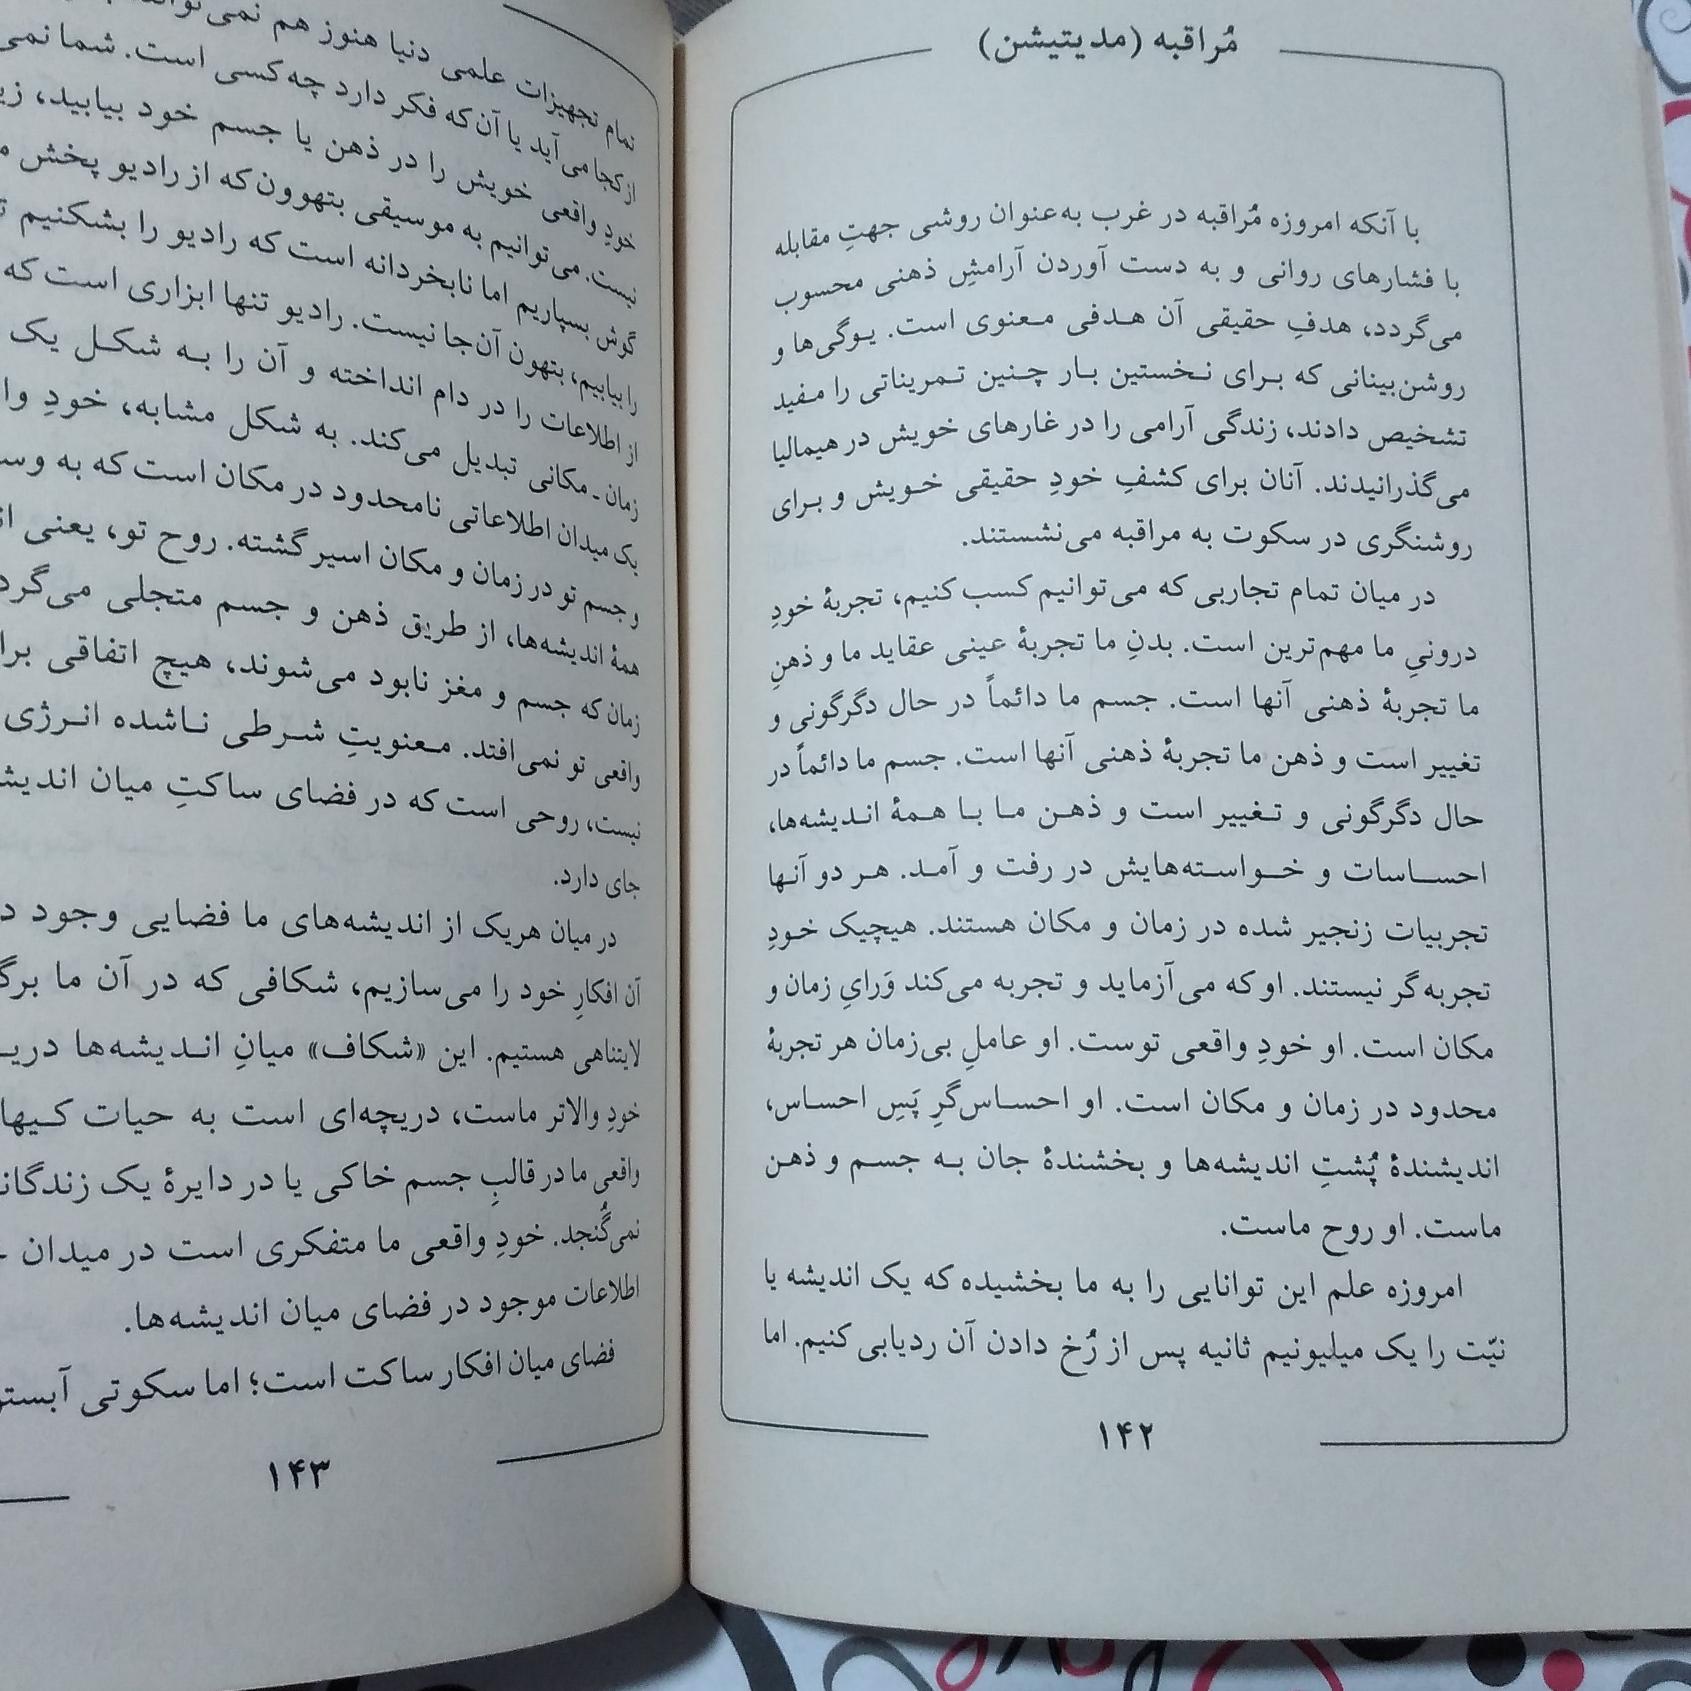 مُراقبه (مدیتیشن)
با آنکه امروزه مُراقبه در غرب به‌عنوان روشی جهتِ مقابله
با فشارهای روانی و به دست آوردن آرامشِ ذهنی محسوب
می‌گردد، هدفِ حقیقی آن هدفی معنوی است. یوگی‌ها و
روشن‌بینانی که برای نخستین بار چنین تمریناتی را مفید
تشخیص دادند، زندگی آرامی را در غارهای خویش در هیمالیا
می‌گذرانیدند. آنان برای کشفِ خودِ حقیقی خویش و برای
روشنگری در سکوت به مراقبه می‌نشستند.
در میان تمام تجاربی که می‌توانیم کسب کنیم، تجربهٔ خودِ
درونیِ ما مهم‌ترین است. بدنِ ما تجربهٔ عینی عقاید ما و ذهنِ
ما تجربهٔ ذهنی آنها است. جسم ما دائماً در حال دگرگونی و
تغییر است و ذهن ما تجربهٔ ذهنی آنها است. جسم ما دائماً در
حال دگرگونی و تغییر است و ذهن ما با همهٔ اندیشه‌ها،
احساسات و خواسته‌هایش در رفت و آمد. هر دو آنها
تجربیات زنجیر شده در زمان و مکان هستند. هیچیک خودِ
تجربه‌گر نیستند. او که می‌آزماید و تجربه می‌کند وَرایِ زمان و
مکان است. او خودِ واقعی توست. او عاملِ بی‌زمان هر تجربهٔ
محدود در زمان و مکان است. او احساس‌گرِ پَسِ احساس،
اندیشندهٔ پُشتِ اندیشه‌ها و بخشندهٔ جان به جسم و ذهن
ماست. او روح ماست.
امروزه علم این توانایی را به ما بخشیده که یک اندیشه یا
نیّت را یک میلیونیم ثانیه پس از رُخ دادن آن ردیابی کنیم. اما
۱۴۲
تمام تجهیزات علمی دنیا هنوز هم
از کجا می‌آید یا آن‌که فکر دارد چه کسی است. شما
خودِ واقعی خویش را در ذهن یا جسم خود بیابید،
نیست. می‌توانیم به موسیقی بتهوون که از رادیو پخش
گوش بسپاریم اما نابخردانه است که رادیو را بشکنیم
را بیابیم، بتهون آن‌جا نیست. رادیو تنها ابزاری است که
از اطلاعات را در دام انداخته و آن را به شکل یک
زمان ـ مکانی تبدیل می‌کند. به شکل مشابه، خودِ
یک میدان اطلاعاتی نامحدود در مکان است که به
و جسم تو در زمان و مکان اسیر گشته. روح تو، یعنی
همهٔ اندیشه‌ها، از طریق ذهن و جسم متجلی
زمان که جسم و مغز نابود می‌شوند، هیچ اتفاقی
واقعی تو نمی‌افتد. معنویتِ شرطی ناشده انرژی
نیست، روحی است که در فضای ساکتِ میان
جای دارد.
در میان هریک از اندیشه‌های ما فضایی وجود
آن افکارِ خود را می‌سازیم، شکافی که در آن ما
لایتناهی هستیم. این «شکاف» میانِ اندیشه‌ها
خودِ والاتر ماست، دریچه‌ای است به حیات
واقعی ما در قالبِ جسم خاکی یا در دایرهٔ یک
نمی‌گُنجد. خودِ واقعی ما متفکری است در میدان
اطلاعات موجود در فضای میان اندیشه‌ها.
فضای میان افکار ساکت است؛ اما سکوتی
۱۴۳